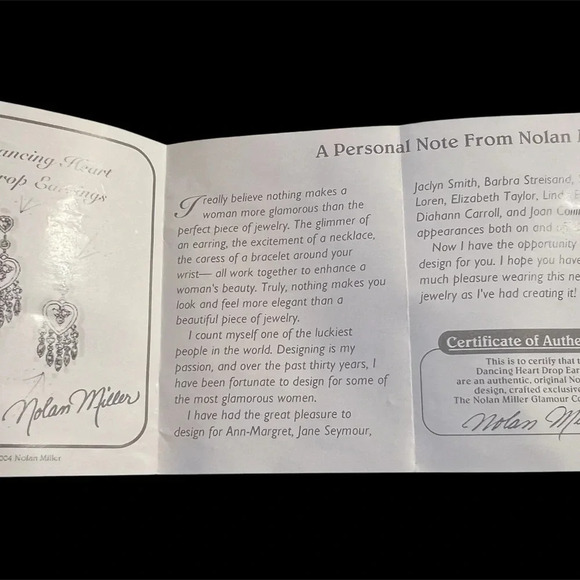 ancing Heart
rop Earrings
Nolan Miller
004 Nolan Miller
A Personal Note From Nolan
I really believe nothing makes a
woman more glamorous than the
perfect piece of jewelry. The glimmer of
an earring, the excitement of a necklace,
the caress of a bracelet around your
wrist— all work together to enhance a
woman's beauty. Truly, nothing makes you
look and feel more elegant than a
beautiful piece of jewelry.
I count myself one of the luckiest
people in the world. Designing is my
passion, and over the past thirty years, I
have been fortunate to design for some of
the most glamorous women.
I have had the great pleasure to
design for Ann-Margret, Jane Seymour,
Jaclyn Smith, Barbra Streisand,
Loren, Elizabeth Taylor,
Diahann Carroll, and Joan
appearances both on and
Now I have the opportunity
design for you. I hope you have
much pleasure wearing this
jewelry as I've had creating it!
Certificate of
This is to certify that
Dancing Heart Drop
are an authentic, original
design, crafted
The Nolan Miller Glamour
Nolan